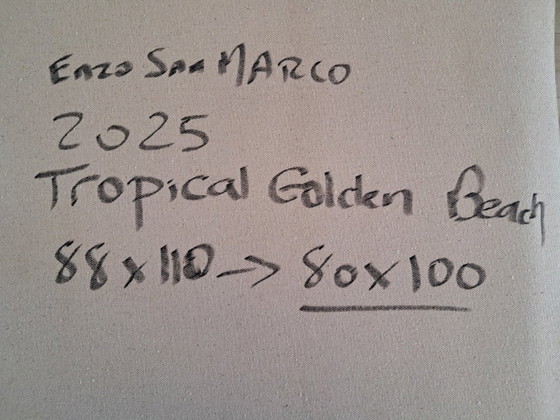 Enzo San MARCO
2025
Tropical Golden Beach
88x110 -> 80x100